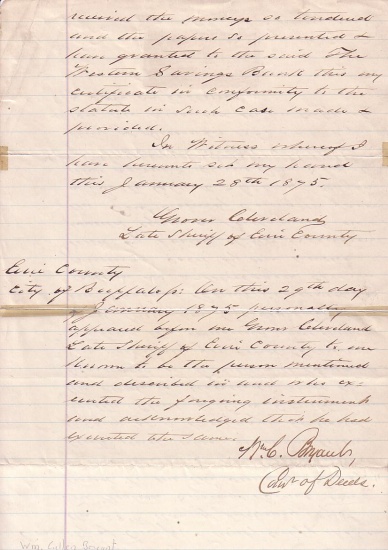 received the moneys so tendered
and the papers so presented &
have granted to the said The
Western Savings Bank this my
certificate in conformity to the
statute in such case made &
provided.
In Witness whereof I
have hereunto set my hand
this January 28th 1875.
Grover Cleveland
Late Sheriff of Erie County
Erie County
City of Buffalo ss: On this 29th day
of January 1875 personally
appeared before me Grover Cleveland
Late Sheriff of Erie County to me
known to be the person mentioned
and described in and who exe-
cuted the forgoing instrument
and acknowledged that he had
executed the same.
Wm C. Bryant,
Comr of Deeds.
Wm. Cullen Bryant